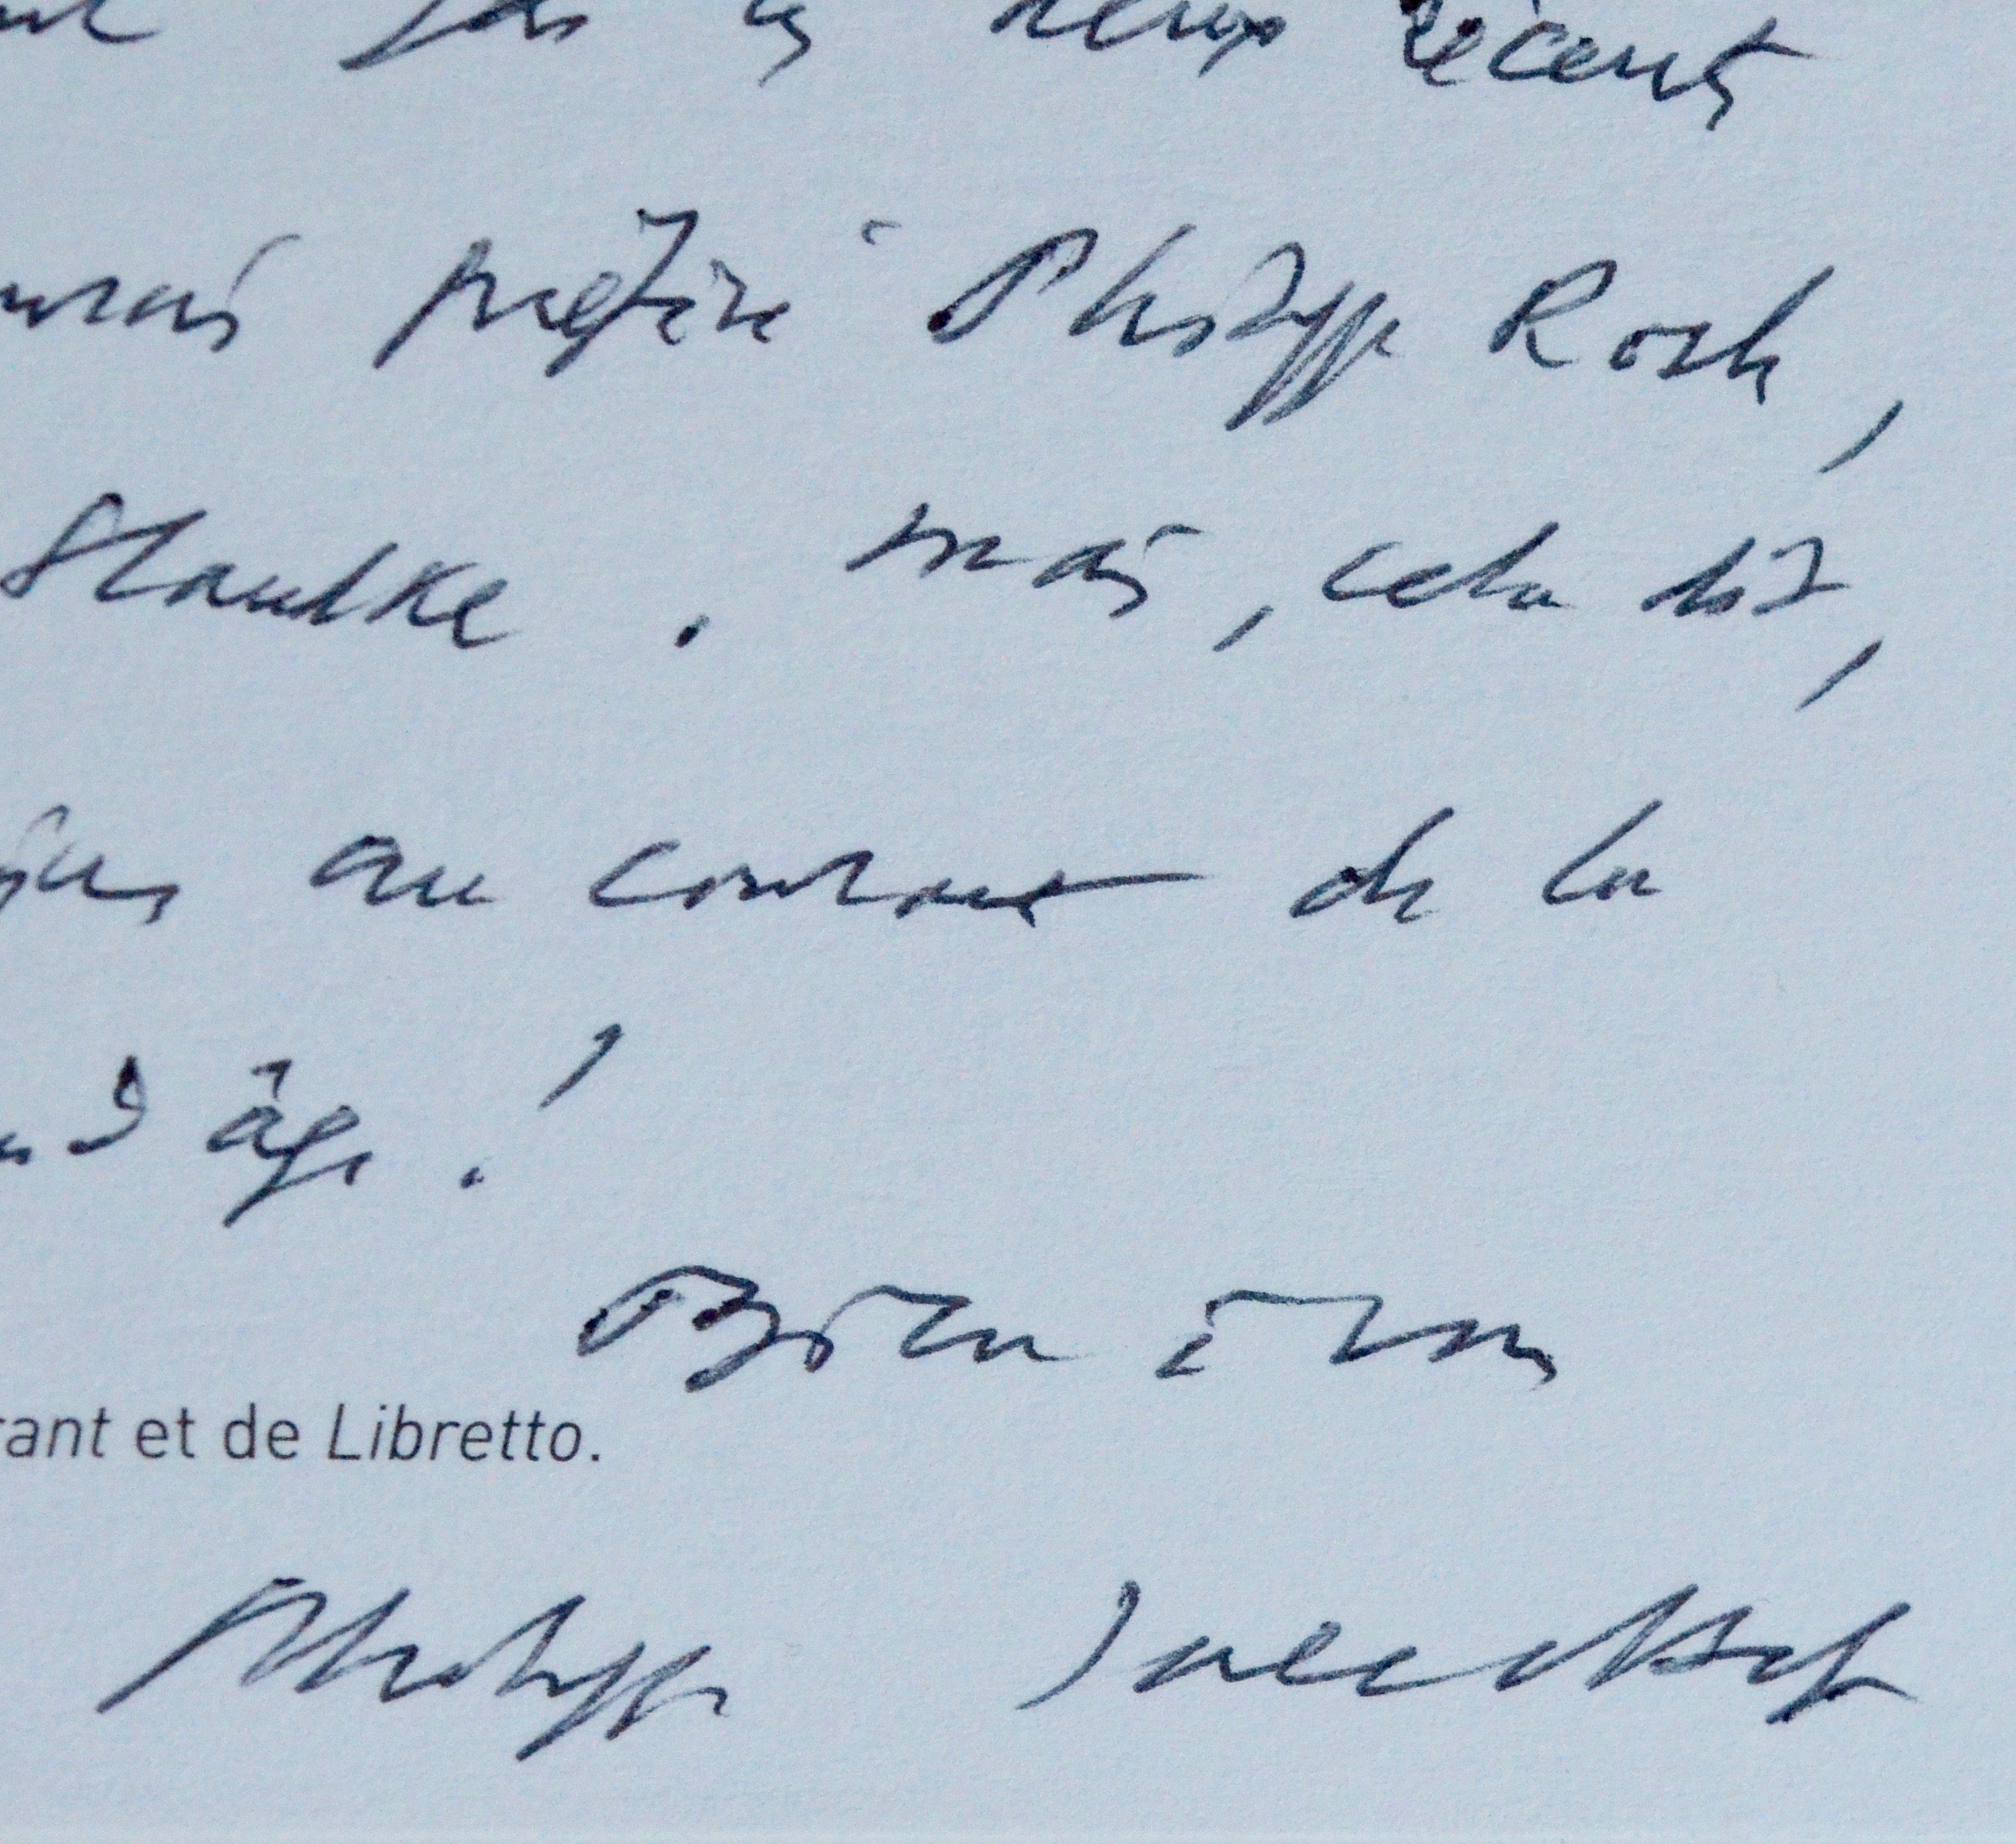 les deux récents
préféré Philippe Roth,
Handke. Mais, cela dit,
au contraire de la
âge!
Bien à vous
rant et de Libretto.
Philippe Jaccottet